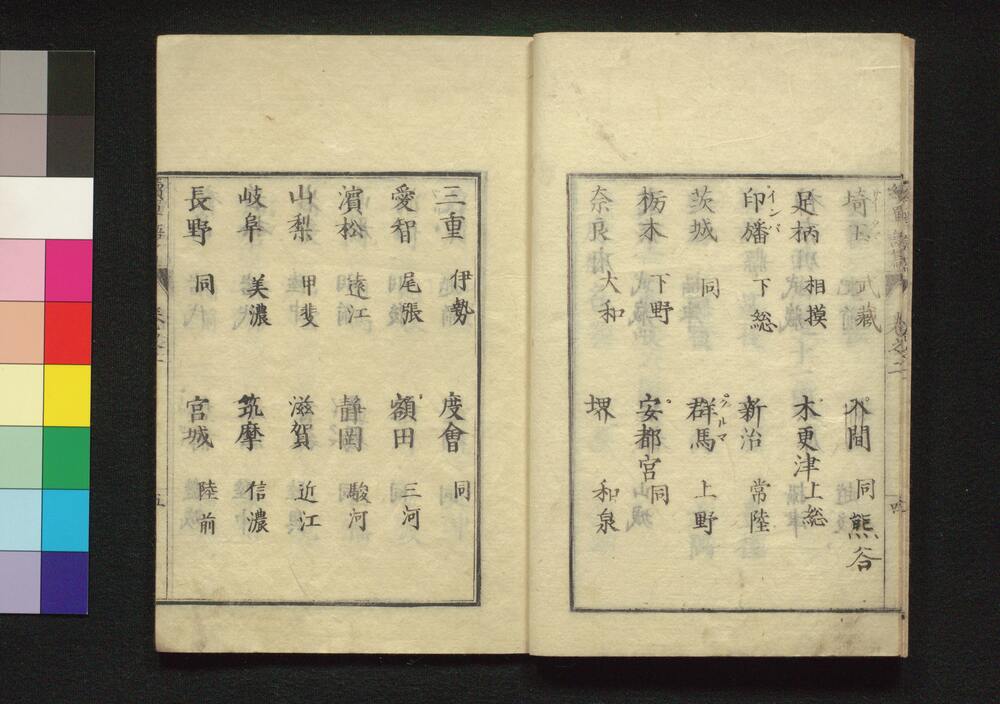 埼玉 武蔵 入間 同 熊谷
足柄 相摸 木更津 上総
印旛 下総 新治 常陸
インバ
茨城 同 群馬 上野
クルマ
栃木 下野 安都宮 同
奈良 大和 堺 和泉
四
三重 伊勢 度會 同
愛智 尾張 額田 三河
濱松 遠江 靜岡 駿河
山梨 甲斐 滋賀 近江
岐阜 美濃 筑摩 信濃
長野 同 宮城 陸前
五